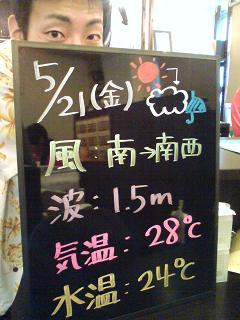 5/21(金)
風 南→南西
波:1.5m
気温:28℃
水温:24℃